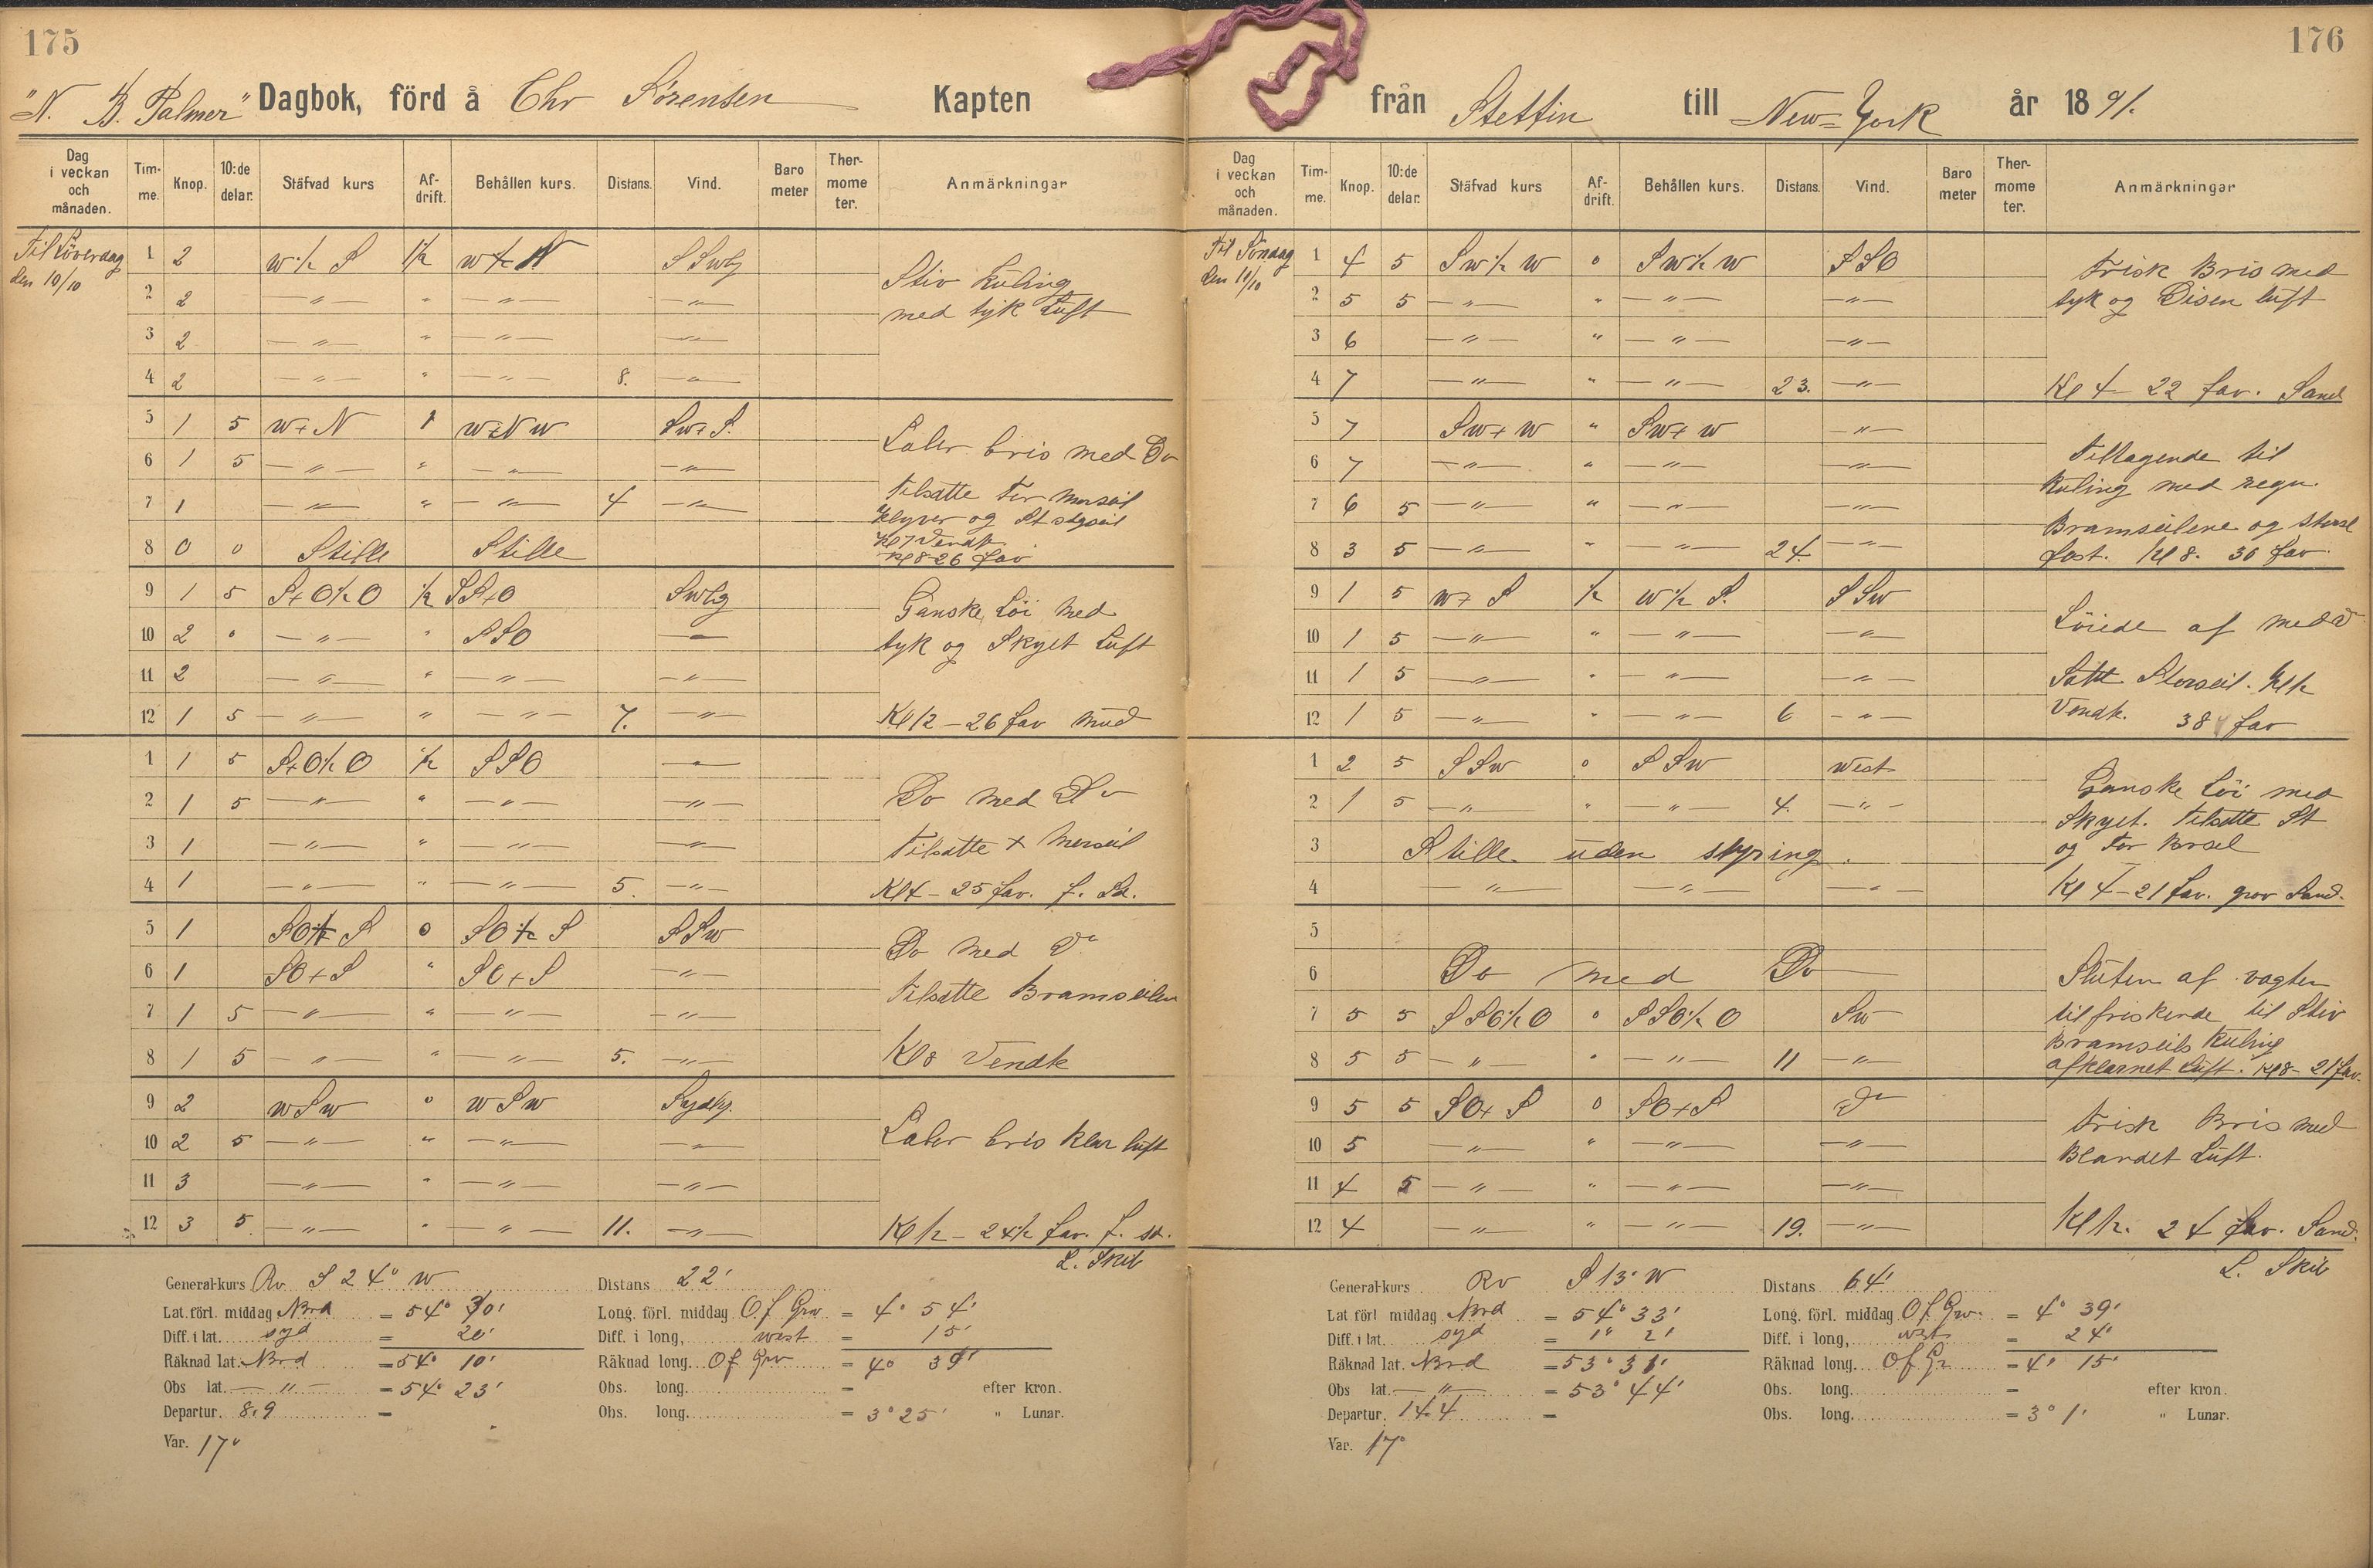 175
"N. B. Palmer" Dagbok, förd å Chr Sörensen Kapten
Dag i veckan och månaden. Tim-me. Knop. 10:de delar. Stäfvad kurs Af-drift. Behållen kurs. Distans. Vind. Baro meter Ther-mome ter. Anmärkningar
Til Löverdag den 10/10
1 2 W½S 1½ SSWlg
2 2 —"— " —"— —"—
3 2 —"— " —"— —"—
4 2 —"— " —"— 8. —"—
Stiv Kuling
med tyk Luft
5 1 5 W+N 1 W+NW SW+S.
6 1 5 —"— " —"— —"—
7 1 —"— " —"— 4 —"—
8 0 0 Stille Stille
Laber bris med Do
Tilsatte For Merseil
Klyver og St stgseil
Kl 7 Vendt.
Kl 8-26 fav
9 1 5 S+O½O ½ SS+O SWlg
10 2 " —"— " SSO —"—
11 2 —"— " —"— —"—
12 1 5 —"— " —"— 7. —"—
Ganske Löi med
tyk og Skyet Luft
Kl 12 – 26 fav mud
1 1 5 S+O½O ½ SSO —"—
2 1 5 —"— " —"— —"—
3 1 —"— " —"— —"—
4 1 —"— " —"— 5. —"—
Do med Do
Tilsatte + Merseil
Kl 4 – 25 fav. f. Sd.
5 1 SO½S 0 SO½S SSW
6 1 SO+S " SO+S —"—
7 1 5 —"— " —"— —"—
8 1 5 —"— " —"— 5. —"—
Do med Do
Tilsatte Bramseilen
Kl 8 Vendt
9 2 WSW 0 WSW Sydlg.
10 2 5 —"— " —"— —"—
11 3 —"— " —"— —"—
12 3 5 —"— " —"— 11. —"—
Laber bris klar luft
Kl 12 – 24½ fav. f. sd.
L. Skib
General-kurs Rv S 24° W Distans 22'
Lat. förl. middag Nord = 54° 30' Long. förl. middag O f Grw = 4° 54'
Diff. i lat. syd = 20' Diff. i long, west = 15'
Räknad lat. Nord = 54° 10' Räknad long. O f Grw = 4° 39'
Obs lat. —"— = 54° 23' Obs. long. = efter kron.
Departur. 8.9 = Obs. long. = 3° 25' " Lunar.
Var. 17°
176
från Stettin till New-York år 1891.
Dag i veckan och månaden. Tim-me. Knop. 10:de delar. Stäfvad kurs Af-drift. Behållen kurs. Distans. Vind. Baro meter Ther-mome ter. Anmärkningar
Til Söndag den 11/10
1 4 5 SW½W 0 SW½W SSO
2 5 5 —"— " —"— —"—
3 6 —"— " —"— —"—
4 7 —"— " —"— 23. —"—
Frisk Bris med
tyk og Disen luft
Kl 4 – 22 fav. Sand
5 7 SW+W " SW+W —"—
6 7 —"— " —"— —"—
7 6 5 —"— " —"— —"—
8 3 5 —"— " —"— 24. —"—
Tiltagende til
Kuling med regn.
Bramseilene og
fast. Kl 8. 30 fav.
9 1 5 W+S ½ W½S. SSW
10 1 5 —"— " —"— —"—
11 1 5 —"— " —"— —"—
12 1 5 —"— " —"— 6 —"—
Löiede af med Do
Satte Storseil. Kl 12
Vendt. 38 fav
1 2 5 SSW 0 SSW West
2 1 5 —"— " —"— 4. —"—
3 Stille uden styring.
4 —"— —"— —"—
Ganske Löi med
Skyet. Tilsatte St
og For Brsel
Kl 4 – 21 fav. grov Sand.
5
6 Do med Do
7 5 5 SSO½O 0 SSO½O SW
8 5 5 —"— " —"— 11 —"—
Sluten af vagten
tilfriskende til Stiv
Bramseils Kuling
afklarnet Luft. Kl 8 – 21 fav.
9 5 5 SO+S 0 SO+S Do
10 5 —"— " —"— —"—
11 4 5 —"— " —"— —"—
12 4 —"— " —"— 19. —"—
Frisk Bris med
Blandet Luft.
Kl 12. 24 fav. Sand.
L. Skib
General-kurs Rv S 13° W Distans 64'
Lat förl middag Nord = 54° 33' Long. förl. middag O f Grw. = 4° 39'
Diff. i lat. syd = 1° 2' Diff. i long, west = 24'
Räknad lat. Nord = 53° 31' Räknad long. O f Gr = 4° 15'
Obs lat. —"— = 53° 44' Obs. long. = efter kron.
Departur. 14.4 = Obs. long. = 3° 1' " Lunar.
Var. 17°